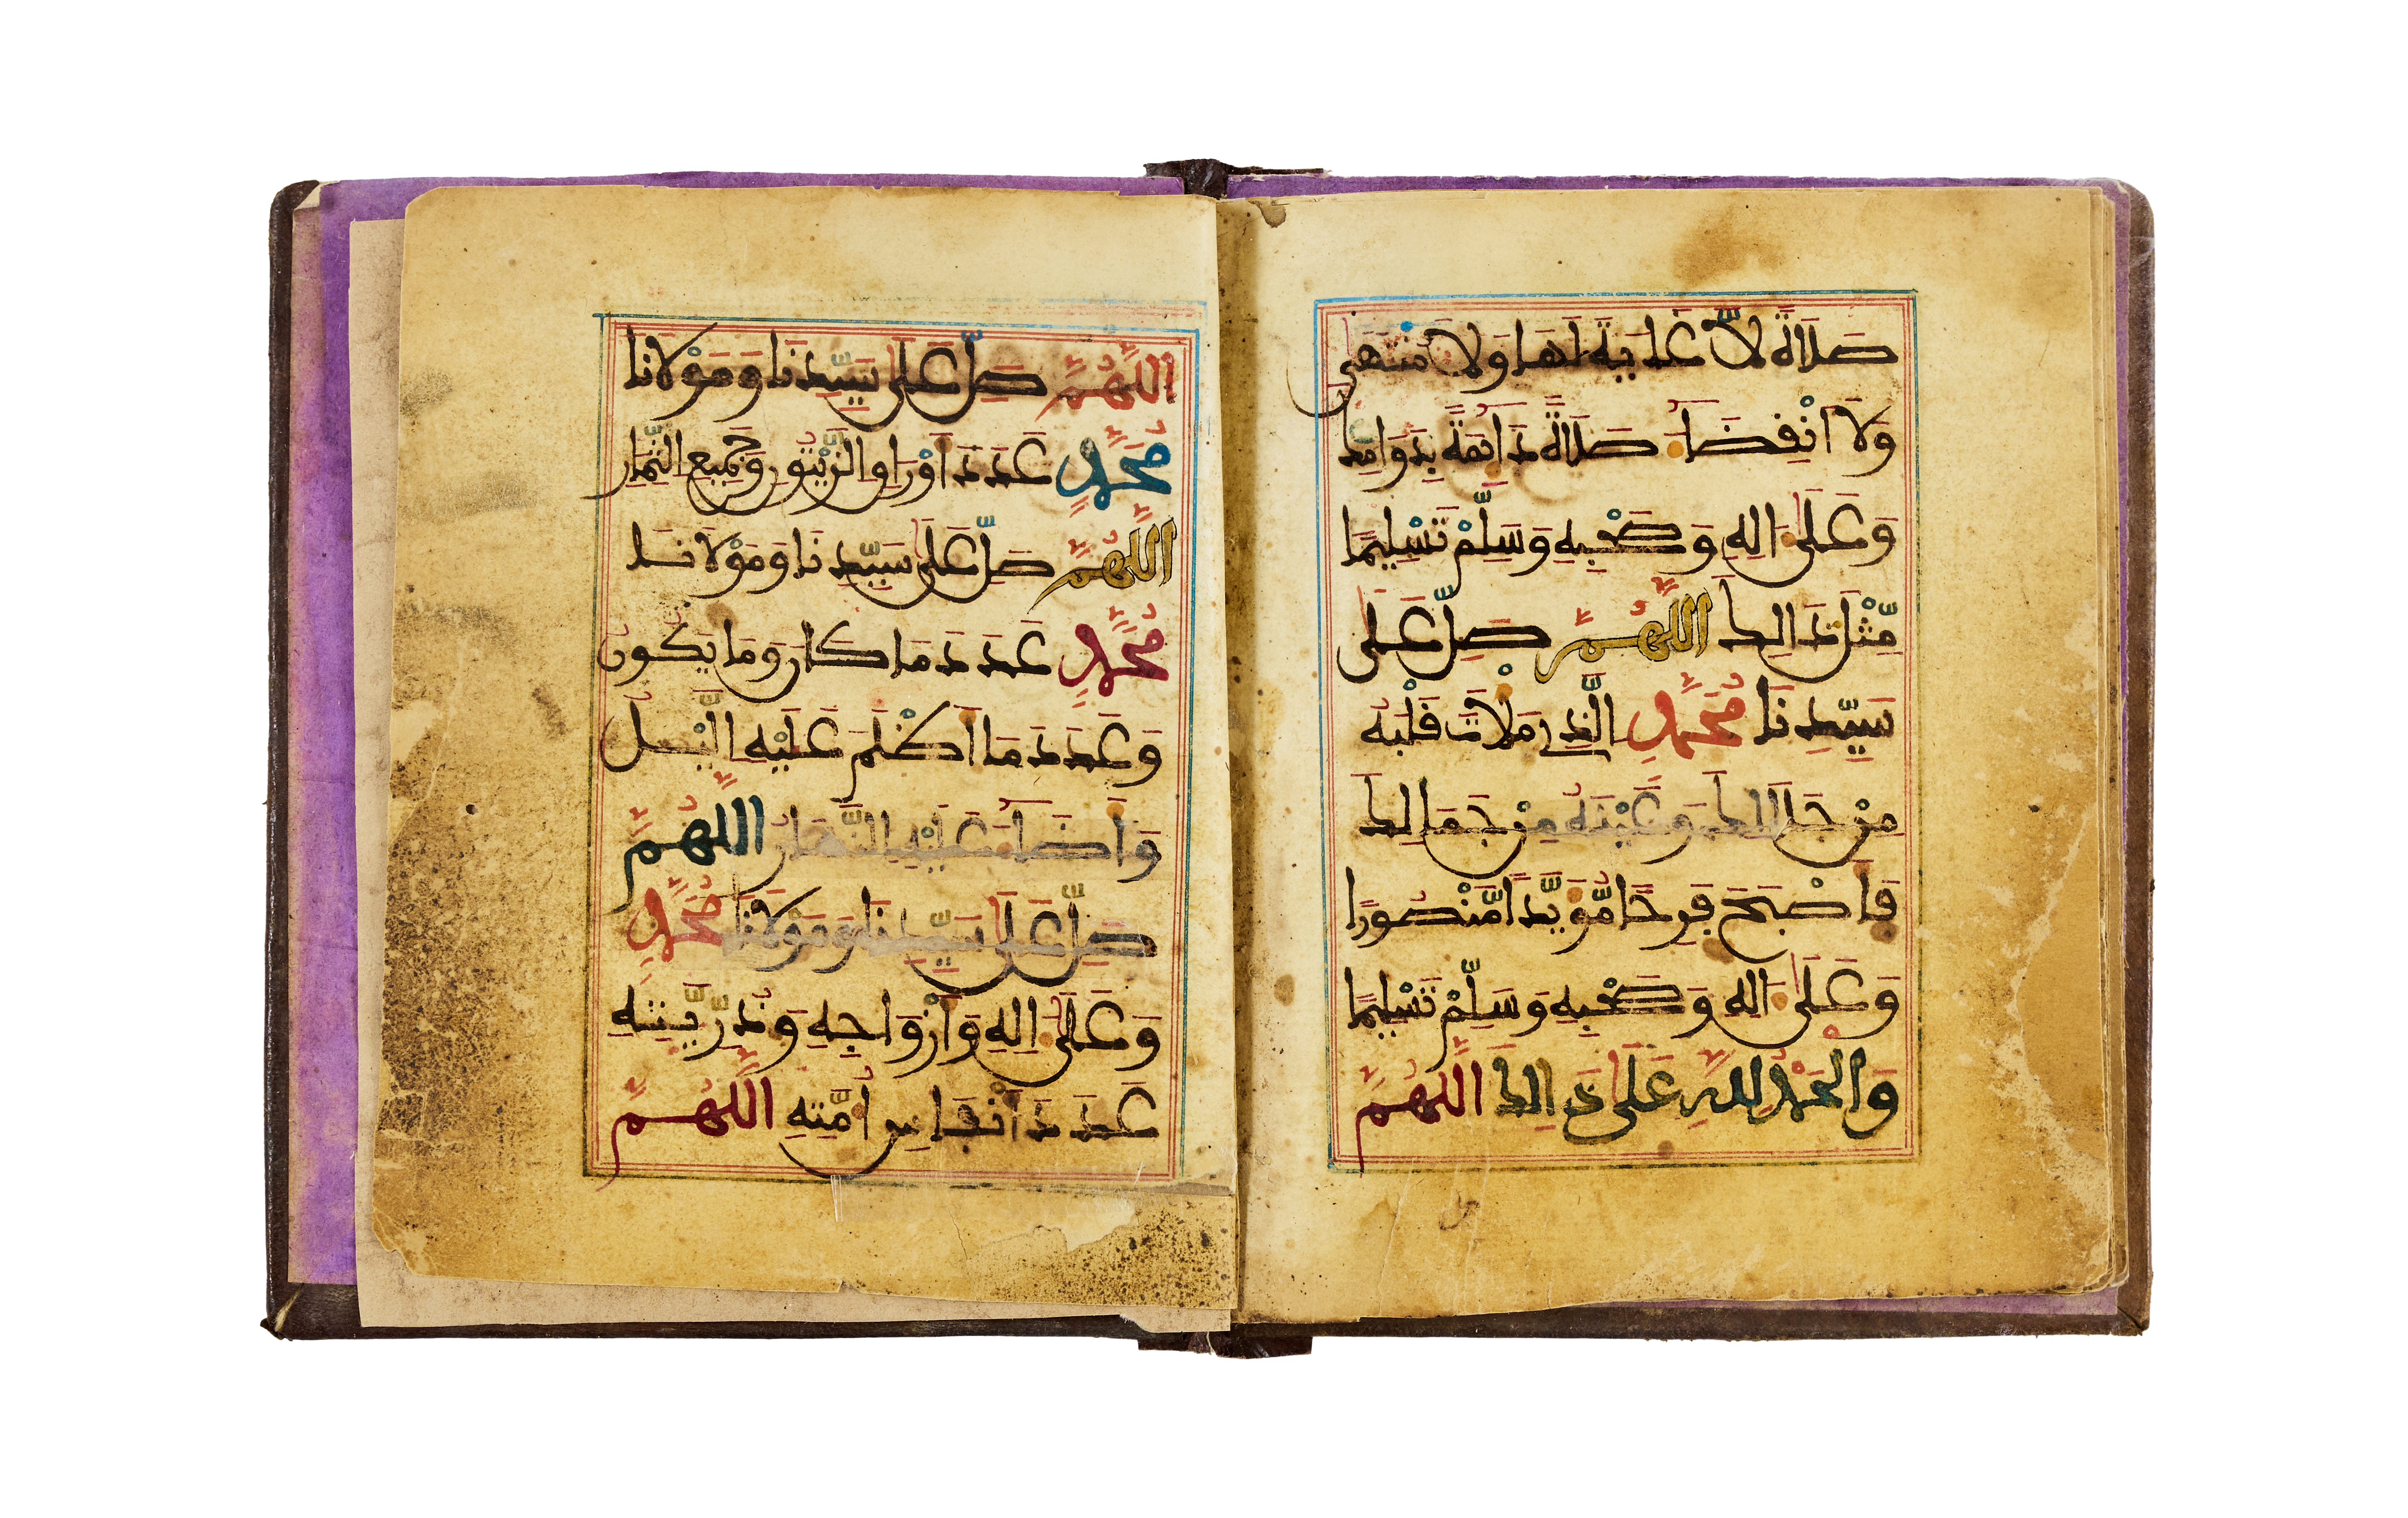 صَلَاةً لَّا غَايَةَ لَهَا وَلَا مُنْتَهَى
وَلَا انْفِضَاءَ صَلَاةً دَائِمَةً بِدَوَامِكَ
وَعَلَى ءَالِهِ وَصَحْبِهِ وَسَلِّمْ تَسْلِيمًا
مِّثْلَ ذَالِكَ اللَّهُمَّ صَلِّ عَلَى
سَيِّدِنَا مُحَمَّدٍ الَّذِي مَلَأْتَ قَلْبَهُ
مِنْ جَلَالِكَ وَعَيْنَهُ مِنْ جَمَالِكَ
فَأَصْبَحَ فَرِحًا مُّؤَيَّدًا مَّنْصُورًا
وَعَلَى ءَالِهِ وَصَحْبِهِ وَسَلِّمْ تَسْلِيمًا
وَالْحَمْدُ لِلهِ عَلَى ذَالِكَ اللَّهُمَّ
اللَّهُمَّ صَلِّ عَلَى سَيِّدِنَا وَمَوْلَانَا
مُحَمَّدٍ عَدَدَ أَوْرَاقِ الزَّيْتُونِ وَجَمِيعِ الثِّمَارِ
اللَّهُمَّ صَلِّ عَلَى سَيِّدِنَا وَمَوْلَانَا
مُحَمَّدٍ عَدَدَ مَا كَانَ وَمَا يَكُونُ
وَعَدَدَ مَا أَظْلَمَ عَلَيْهِ الَّيْلُ
وَأَضَاءَ عَلَيْهِ النَّهَارُ اللَّهُمَّ
صَلِّ عَلَى سَيِّدِنَا وَمَوْلَانَا مُحَمَّدٍ
وَعَلَى ءَالِهِ وَأَزْوَاجِهِ وَذُرِّيَّتِهِ
عَدَدَ أَنْفَاسِ أُمَّتِهِ اللَّهُمَّ